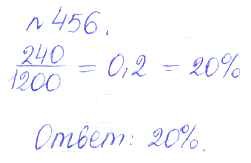 №456.
240/1200 = 0,2 = 20%
Ответ: 20%.